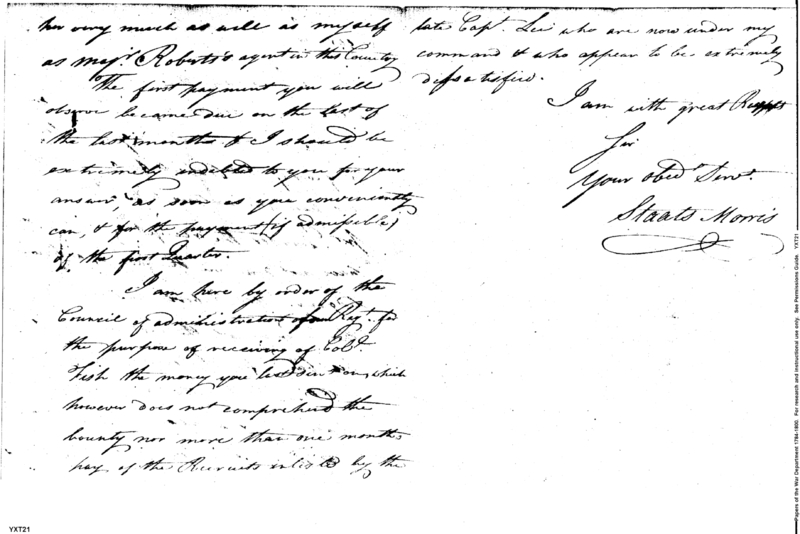 her very much as well as myself
as Majr. Roberts's agent in this Country
The first payment you will
observe became due on the last of
the last months & I should be
extremely indebted to you for your
answr, as soon as you conveniently
can, & for the payment (if admissible)
of the first Quarter.
I am here by order of the
Council of administration of our Regt. for
the purpose of receiving of Colo.
Fish the money you last sent on, which
however does not comprehend the
bounty nor more than one months
pay of the Recruits enlisted by the
late Capt. Lee who are now under my
command & who appear to be extremely
dissatisfied.
I am with great Respt
Sir
Your obedt. Servt.
Staats Morris
YXT21
Papers of the War Department 1784-1800. For research and instructional use only. See Permissions Guide. YXT21